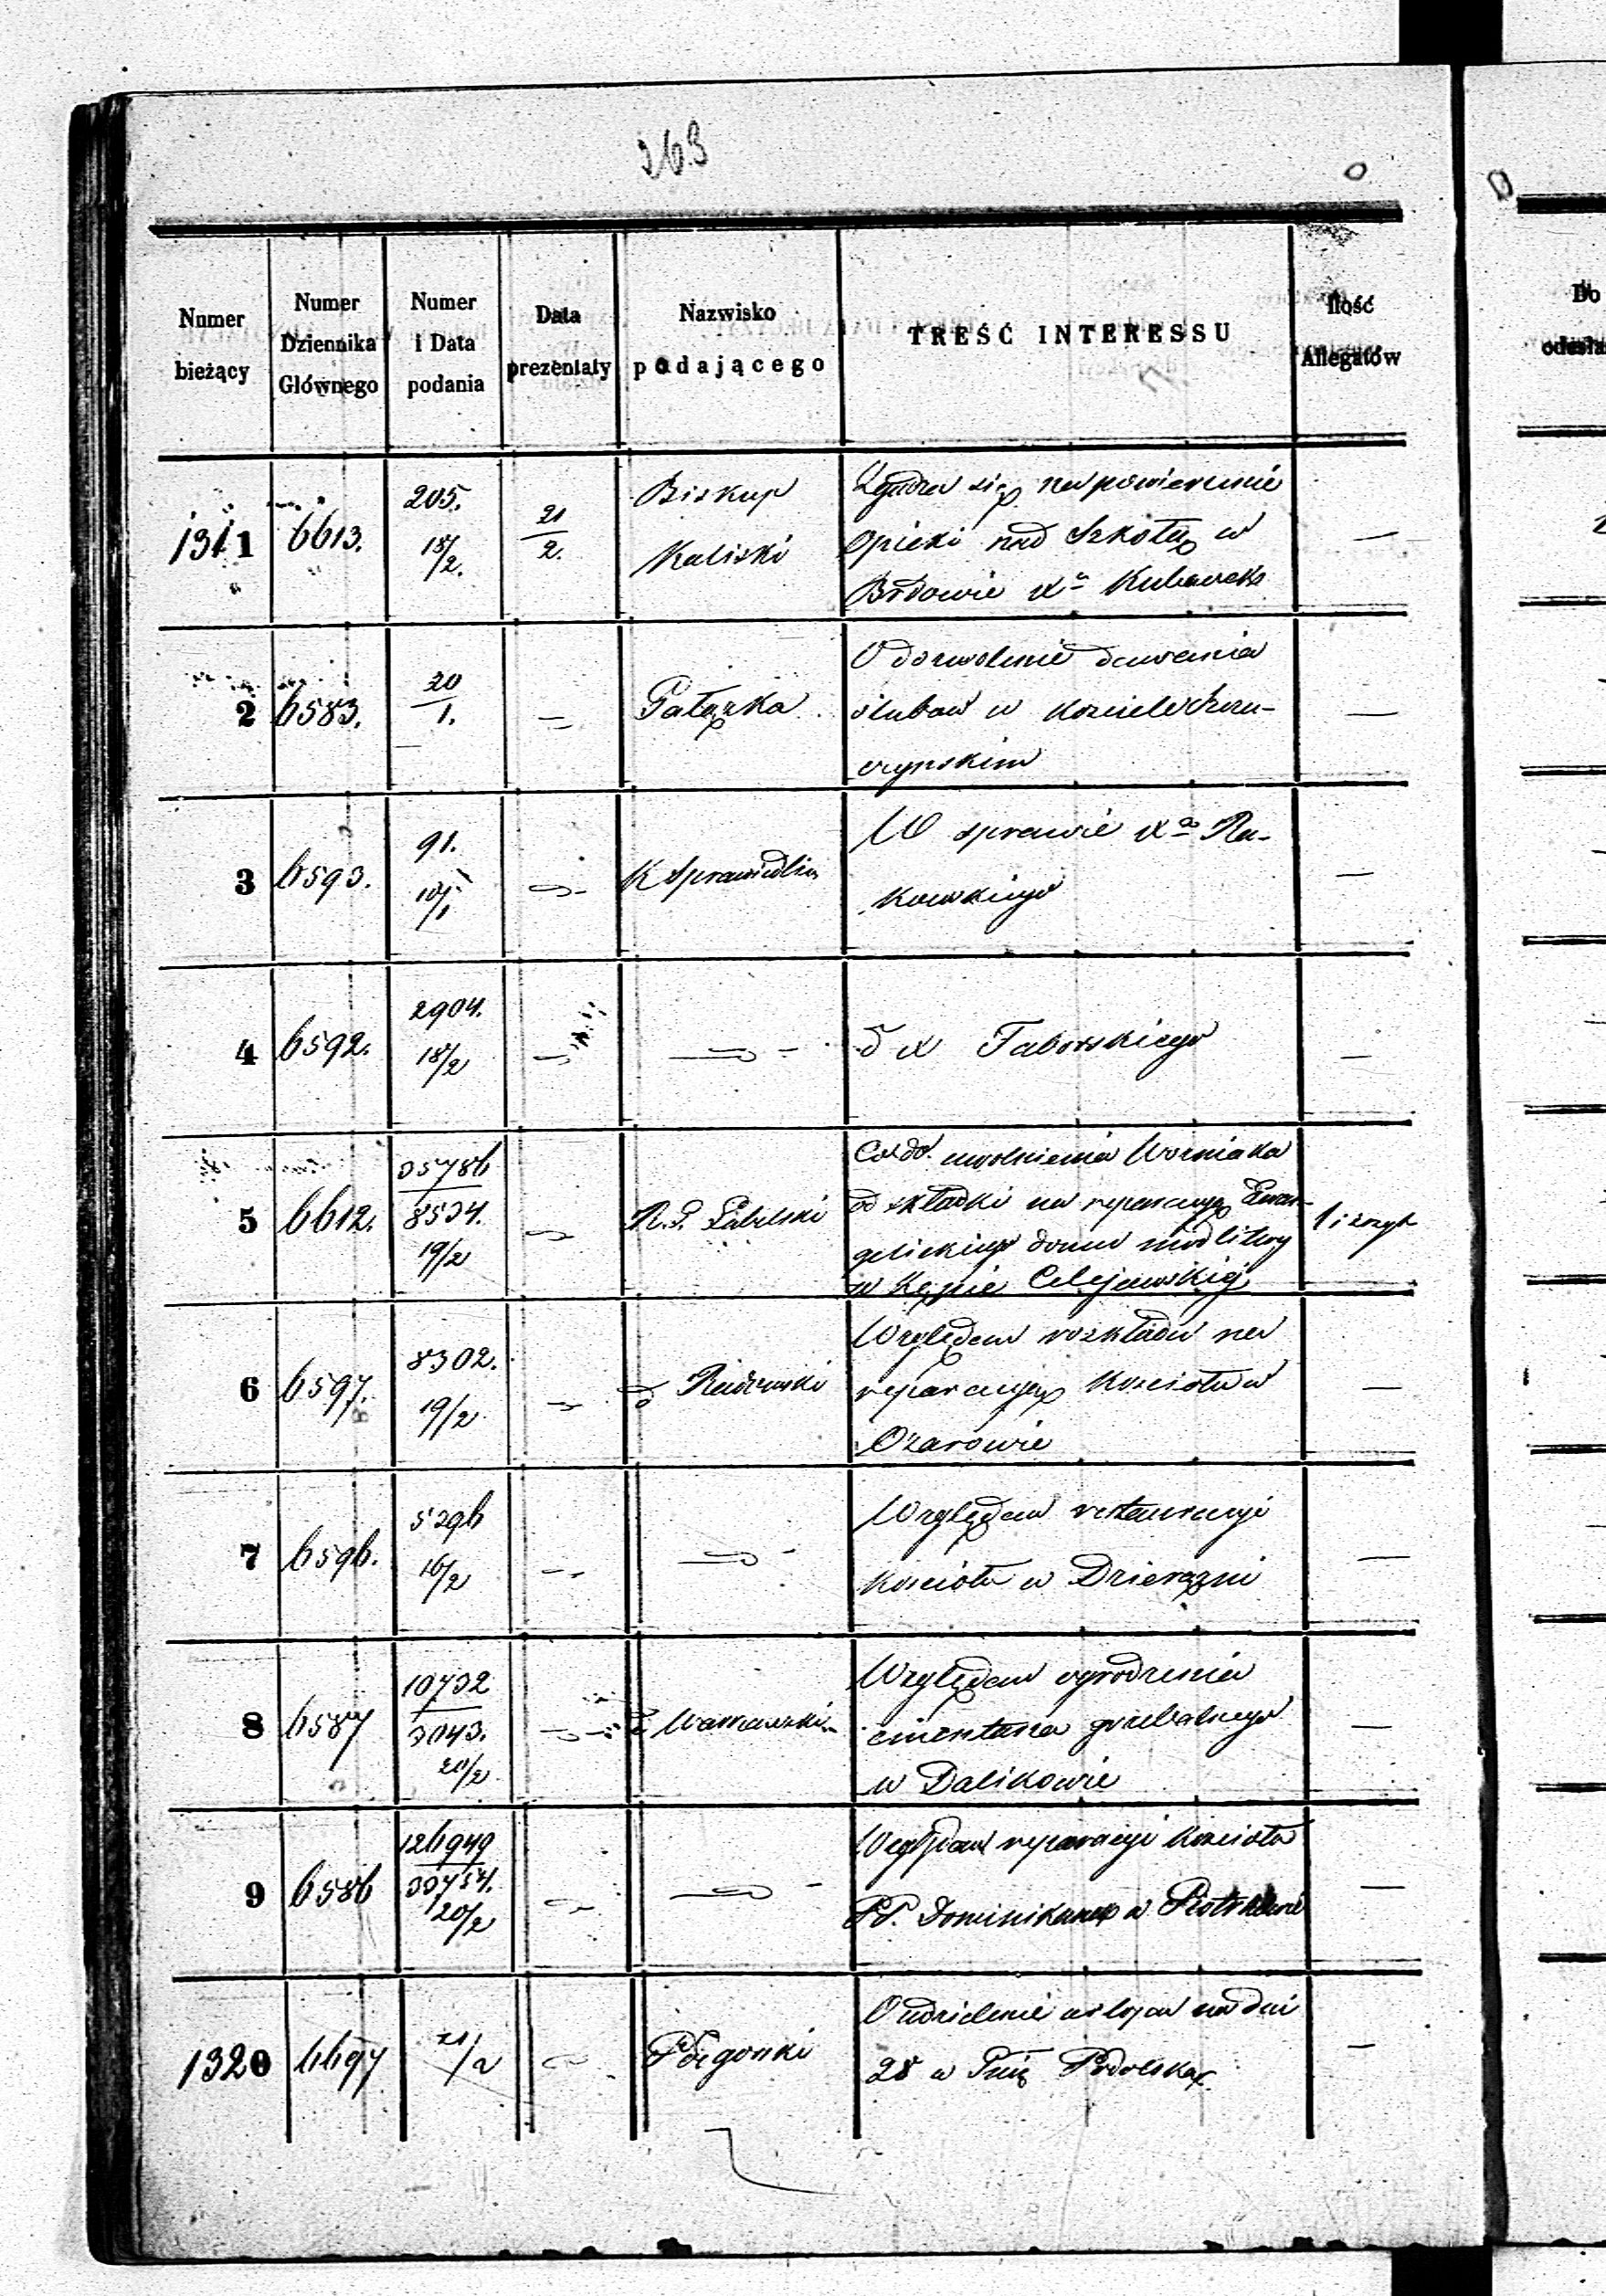 263
Numer bieżący
Numer Dziennika Głównego
Numer i Data podania
Data prezentaty
Nazwisko podającego
TREŚĆ INTERESSU
Ilość Allegatów
1311 6613. 205. 18/2. 21/2. Biskup Kaliski
Zgadza się na powierzenie
opieki nad Szkołą w
Brdowie Xu
—
2 6583. 20/1. — Gałązka
O dozwolenie dawania
ślubów w kościele Szczu-
czyńskim
—
3 6593. 91. 10/1 — K Sprawiedliw
W sprawie Xa Ra-
kowskiego
—
4 6592. 2904. 18/2 — —
d X Taborskiego
—
5 6612. 35786 8534. 19/2 — R. G. Lubelski
Co do uwolnienia Woźniaka
od składki na reparacyę Ewan-
gelickiego domu modlitwy
w Kępie Celejowskiej
1 i zszyt
6 6597. 8302. 19/2 — d Radomski
Względem rozkładu na
reparacyę Kościoła w
Ożarowie
—
7 6596. 5296 16/2 — —
Względem restauracyi
kościoła w Dzierązni
—
8 6587 10732 3043. 20/2 — Warszawski
Względem ogrodzenia
cmentarza grzebalnego
w Dalikowie
—
9 6586 126949 20/2 — —
Względem reparacyi Kościoła
PP. Dominikanek w Piotrkowie
—
1320 6697 21/2 —
O udzielenie urlopu na dni
28 w Gnię Podolską
—
Do